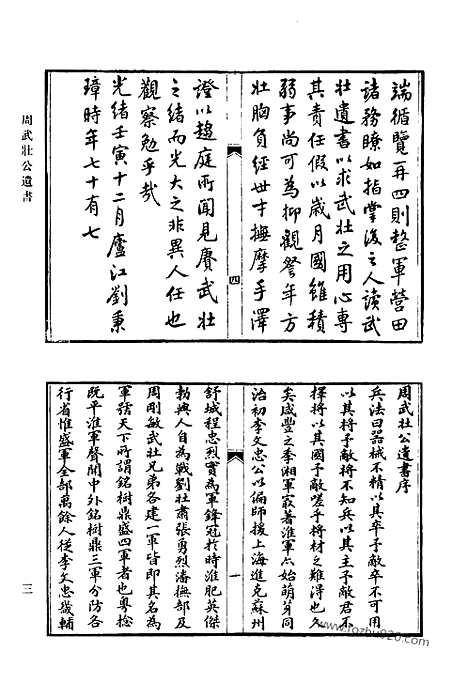 周武壯公遺書
端循覽再四則整軍營田
諸務瞭如指掌後之人讀武
壯遺書以求武壯之用心專
其責任假以歲月國雖積
弱事尚可為抑觀詧年方
壯胸負經世才撫摩手澤
證以趨庭所聞見賡武壯
之緒而光大之非異人任也
觀察勉乎哉
光緒壬寅十二月廬江劉秉
璋時年七十有七
四
周武壯公遺書序
兵法曰器械不精以其卒予敵卒不可用
以其將予敵將不知兵以其主予敵君不
擇將以其國予敵嗟乎將材之難得也久
矣咸豐之季湘軍最著淮軍亦始萌芽同
治初李文忠公以偏師援上海進克蘇州
舒城程忠烈實為軍鋒冠於時淮肥英傑
勃興人自為戰劉壯肅張勇烈潘撫部及
周剛敏武壯兄弟各建一軍皆即其名為
軍號天下所謂銘樹鼎盛四軍者也粵捻
既平淮軍聲聞中外銘樹鼎三軍分防各
行省惟盛軍全部萬餘人從李文忠咸輔
一
三
www.fozhu920.com